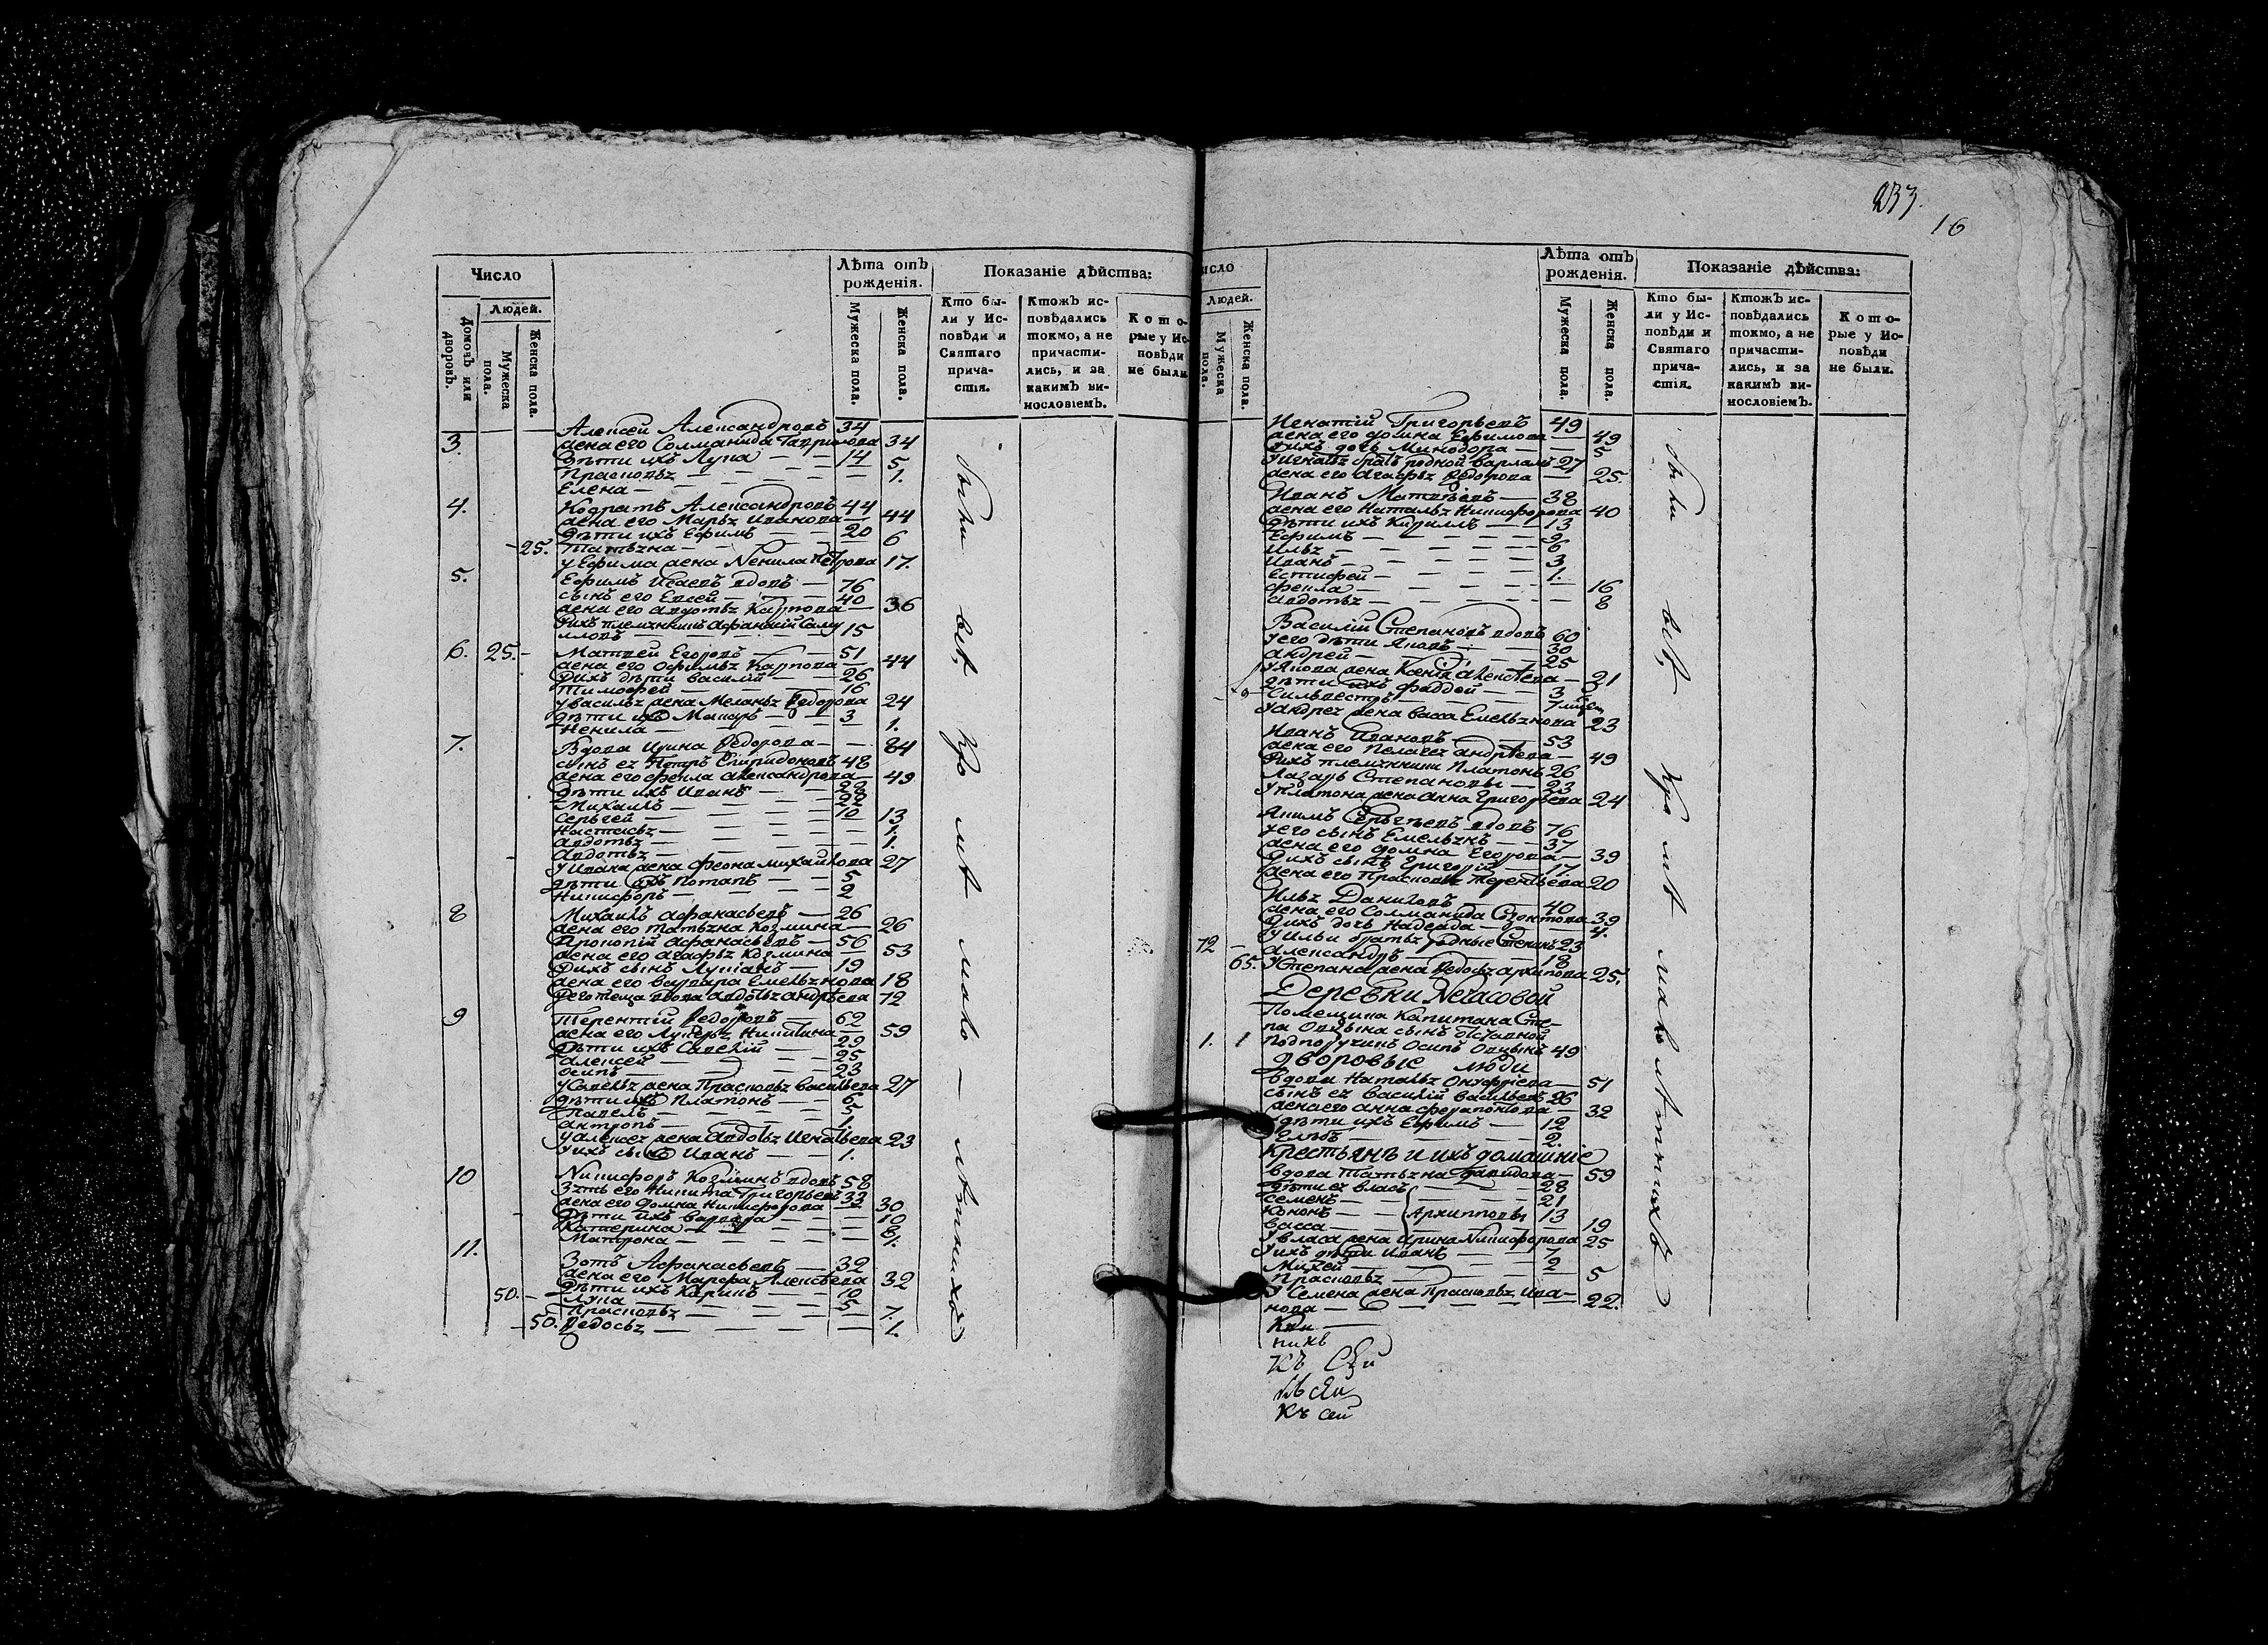 Число
Людей.
Домочъ или дворовъ.
Мужеска пола.
Женска пола.
Лѣта отъ рожденія.
Мужеска пола.
Женска пола.
Показаніе дѣйства:
Кто бы-
ли у Ис-
повѣди и
Святаго
прича-
стія.
Ктожъ ис-
повѣдались
токмо, а не
причасти-
лись, и за
какимъ ви-
нословіемъ.
Кото-
рые у Ис-
повѣди
не были.
Алексей Александровъ 34
3. жена его Соломанида Гаврилова 34
дѣти ихъ Лупа 14
Прасковья 5
Елена 1.
4. Кодратъ Александровъ 44
жена его Марья Иванова 44
дѣти ихъ Ефимъ 20
25. Татьяна 6
у Ефима жена Ненила Петрова 17.
5. Ефимъ Исаевъ вдовъ 76
сынъ его Евсей 40
жена его Авдотья Карпова 36
у ихъ племянникъ Афанасий Саму
иловъ 15
6. 25. Матвей Егоровъ 51
жена его Офимья Карпова 44
у ихъ дѣти Василий 26
Тимофей 16
у Василья жена Меланья Федорова 24
дѣти ихъ Макаръ 3
Ненила 1.
7. Вдова Ирина Федорова 84
сынъ ея Петръ Спиридоновъ 48
жена его Фекла Александрова 49
дѣти ихъ Иванъ 28
Михаилъ 22
Сергей 10
Настасья 13
Авдотья 1.
Авдотья 1.
у Ивана жена Феона Михайлова 27
дѣти ихъ Потапъ 5
Никифоръ 2
8 Михаилъ Афанасьевъ 26
жена его Татьяна Козмина 26
Прокопий Афанасьевъ 56
жена его Агафья Козмина 53
у ихъ сынъ Лукианъ 19
жена его Варвара Емельянова 18
у его теща вдова Авдотья Андрѣева 72
9 Терентий Федоровъ 62
жена его Лукерья Никитина 59
дѣти ихъ Савелий 29
Алексей 25
Осипъ 23
у Савелья жена Прасковья Васильева 27
дѣти ихъ Платонъ 6
Павелъ 5
Антропъ 1.
у Алексея жена Авдотья Игнатьева 23
у ихъ сынъ Иванъ 1.
10 Никифоръ Козминъ вдовъ 58
зять его Никита Григорьевъ 33
жена его Домна Никифорова 30
дѣти ихъ Варвара 10
Катерина 6.
Матрона 1.
11. Зотъ Афанасьевъ 32
жена его Марфа Алексѣева 32
дѣти ихъ Карпъ 10
50. Лупа 5
Прасковья 7.
50. Федосья 1.
были всѣ кро мѣ мало - лѣтнихъ
233.
16
исло
Людей.
Мужеска пола.
Женска пола.
Лѣта отъ рожденія.
Мужеска пола.
Женска пола.
Показаніе дѣйства:
Кто бы-
ли у Ис-
повѣди и
Святаго
прича-
стія.
Ктожъ ис-
повѣдались
токмо, а не
причасти-
лись, и за
какимъ ви-
нословіемъ.
Кото-
рые у Ис-
повѣди
не были.
Игнатий Григорьевъ 49
жена его Домна Ефимова 49
у ихъ дочь Минодора 5
у Игнатья братъ родной Варламъ 27
жена его Агафья Федорова 25.
Иванъ Матвѣевъ 38
жена его Наталья Никифорова 40
дѣти ихъ Кирилъ 13
Ефимъ 9
Илья 6
Иванъ 3
Естифей 1.
Фекла 16
Авдотья 8
Василий Степановъ вдовъ 60
у его дѣти Яковъ 30
Андрей 25
у Якова жена Ксения Алексѣева 21
дѣти ихъ Фаддей 3
Сильвестръ 7
у Андрея жена Васса Емельянова 23
Иванъ Ивановъ 53
жена его Пелагея Андрѣева 49
у ихъ племянники Платонъ 26
Лазарь Степановы 23
у Платона жена Анна Григорьева 24
Якимъ Сергѣевъ вдовъ 76
у его сынъ Емельянъ 37
жена его Домна Егорова 39
у ихъ сынъ Григорий 17
жена его Прасковья Терентьева 20
Илья Даниловъ 40
жена его Соломанида 39
у ихъ дочь Надежда 4.
72 у Ильи братья родные Степанъ 23
Александръ 18
65. у Степана жена Федосья Архипова 25.
Деревни Нечасовой
Помещика Капитана Сте-
па сынъ отставной
1. 1 подпоручикъ Осипъ 49
дворовые люди
Вдова Наталья Онуфриева 51
сынъ ея Василий Васильевъ 26
жена его Анна Ферапонтова 32
дѣти ихъ Ефимъ 12
Глѣбъ 2.
Крестьянъ и ихъ домашние
Вдова Татьяна Давидова 59
дѣти ея Власъ 28
Семенъ 21
Кононъ Архиповы 13
Васса 19
у Власа жена Ирина Никифорова 25
у ихъ дѣти Иванъ 7
Михей 2
Прасковья 5
у Семена жена Прасковья Ива-
нова 22.
никъ
къ сей
къ сей
были всѣ кро мѣ мало лѣтнихъ